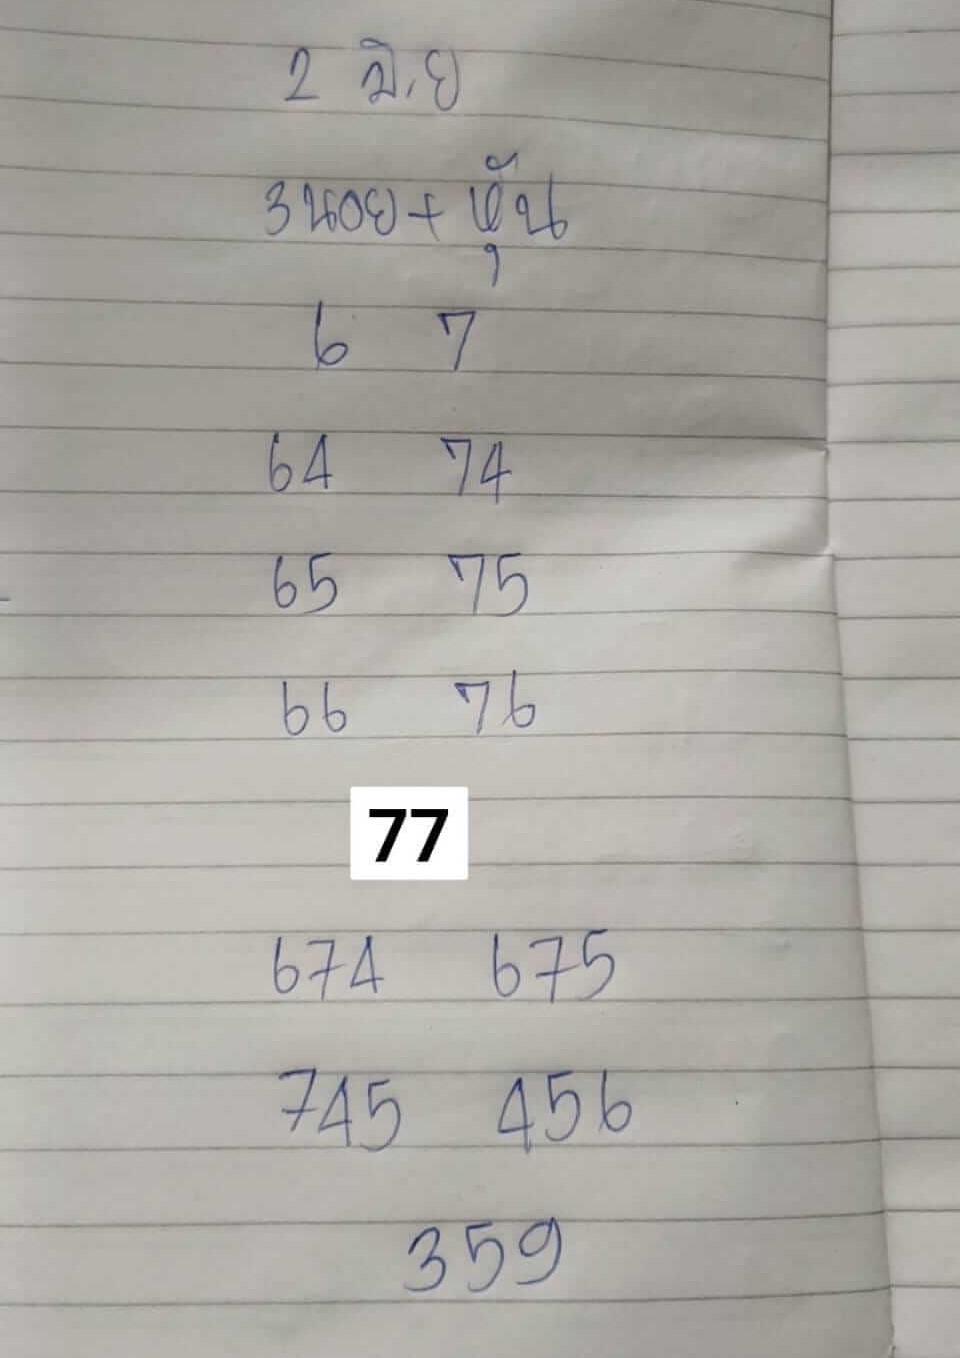 2 มิ.ย
ฮานอย + หุ้น
6 7
64 74
65 75
66 76
77
674 675
745 456
359